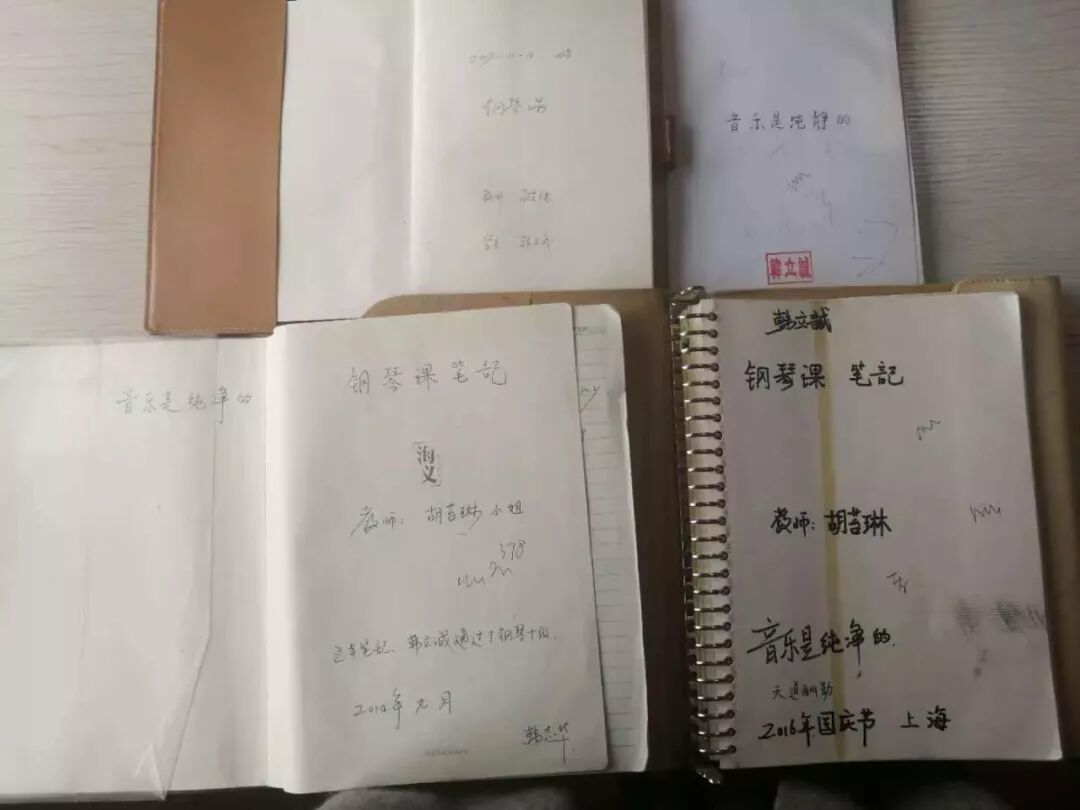 钢琴课
音乐是纯静的
韩立誠
音乐是纯净的
钢琴课笔記
海义
教师：胡苔琳小姐
378
这本笔记、韩立诚通过了钢琴十级.
2014年元月
韩志华
韩立誠
钢琴课 笔記
教师：胡苔琳
音乐是纯净的.
天道酬勤
2016年国庆节 上海